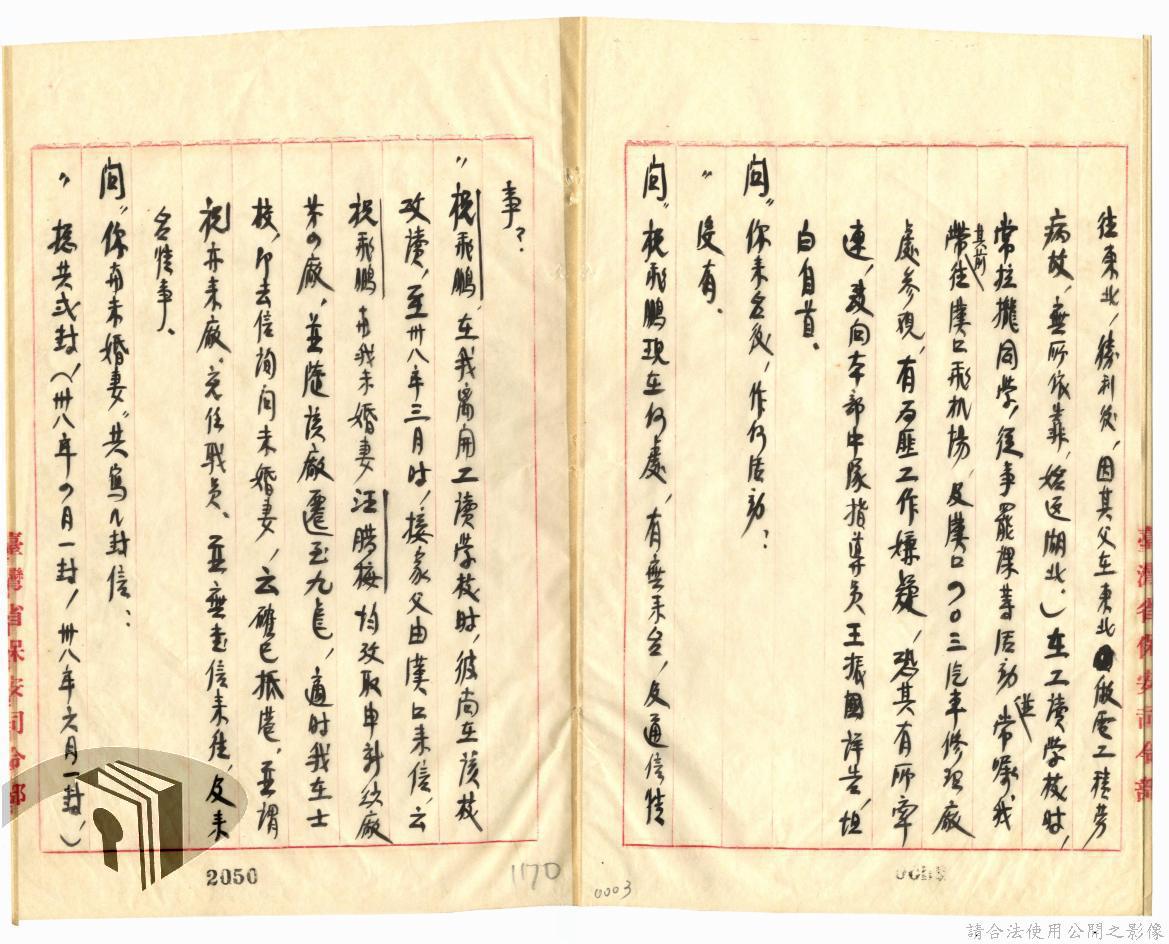 往東北，勝利後，因其父在東北做電工積勞
病故，無所依靠，始返湖北。）在工讀学校時，
常拉攏同学，從事罷課等活動，常嘱我
其前
進
帶往漢口飛机場，及漢口四〇三汽車修理廠
處參观，有為匪工作嫌疑，恐其有所牽
連，爰向本部中隊指導員王振國詳告，坦
白自首。
問〃你來台後，作何活動？
〃沒有。
問〃祝飛鵬現在何處，有無来台，及通信情
事？
〃祝飛鵬，在我离開工讀学校時，彼尚在該校
攻讀，至卅八年三月時，接家父由漢口来信，云
祝飛鵬與我未婚妻汪腊梅均攻取申新紗廠
第四廠，並隨該廠遷至九龍，適時我在士
校，即去信詢問未婚妻，云確已抵港，並謂
祝亦来廠。充任職員、並無書信来往，及来
台情事。
問〃你與未婚妻〃共寫几封信？
〃總共弍封，（卅八年四月一封，卅八年六月一封，）
臺灣省保安司令部
臺灣省保安司令部
2050
170
0003
請合法使用公開之影像